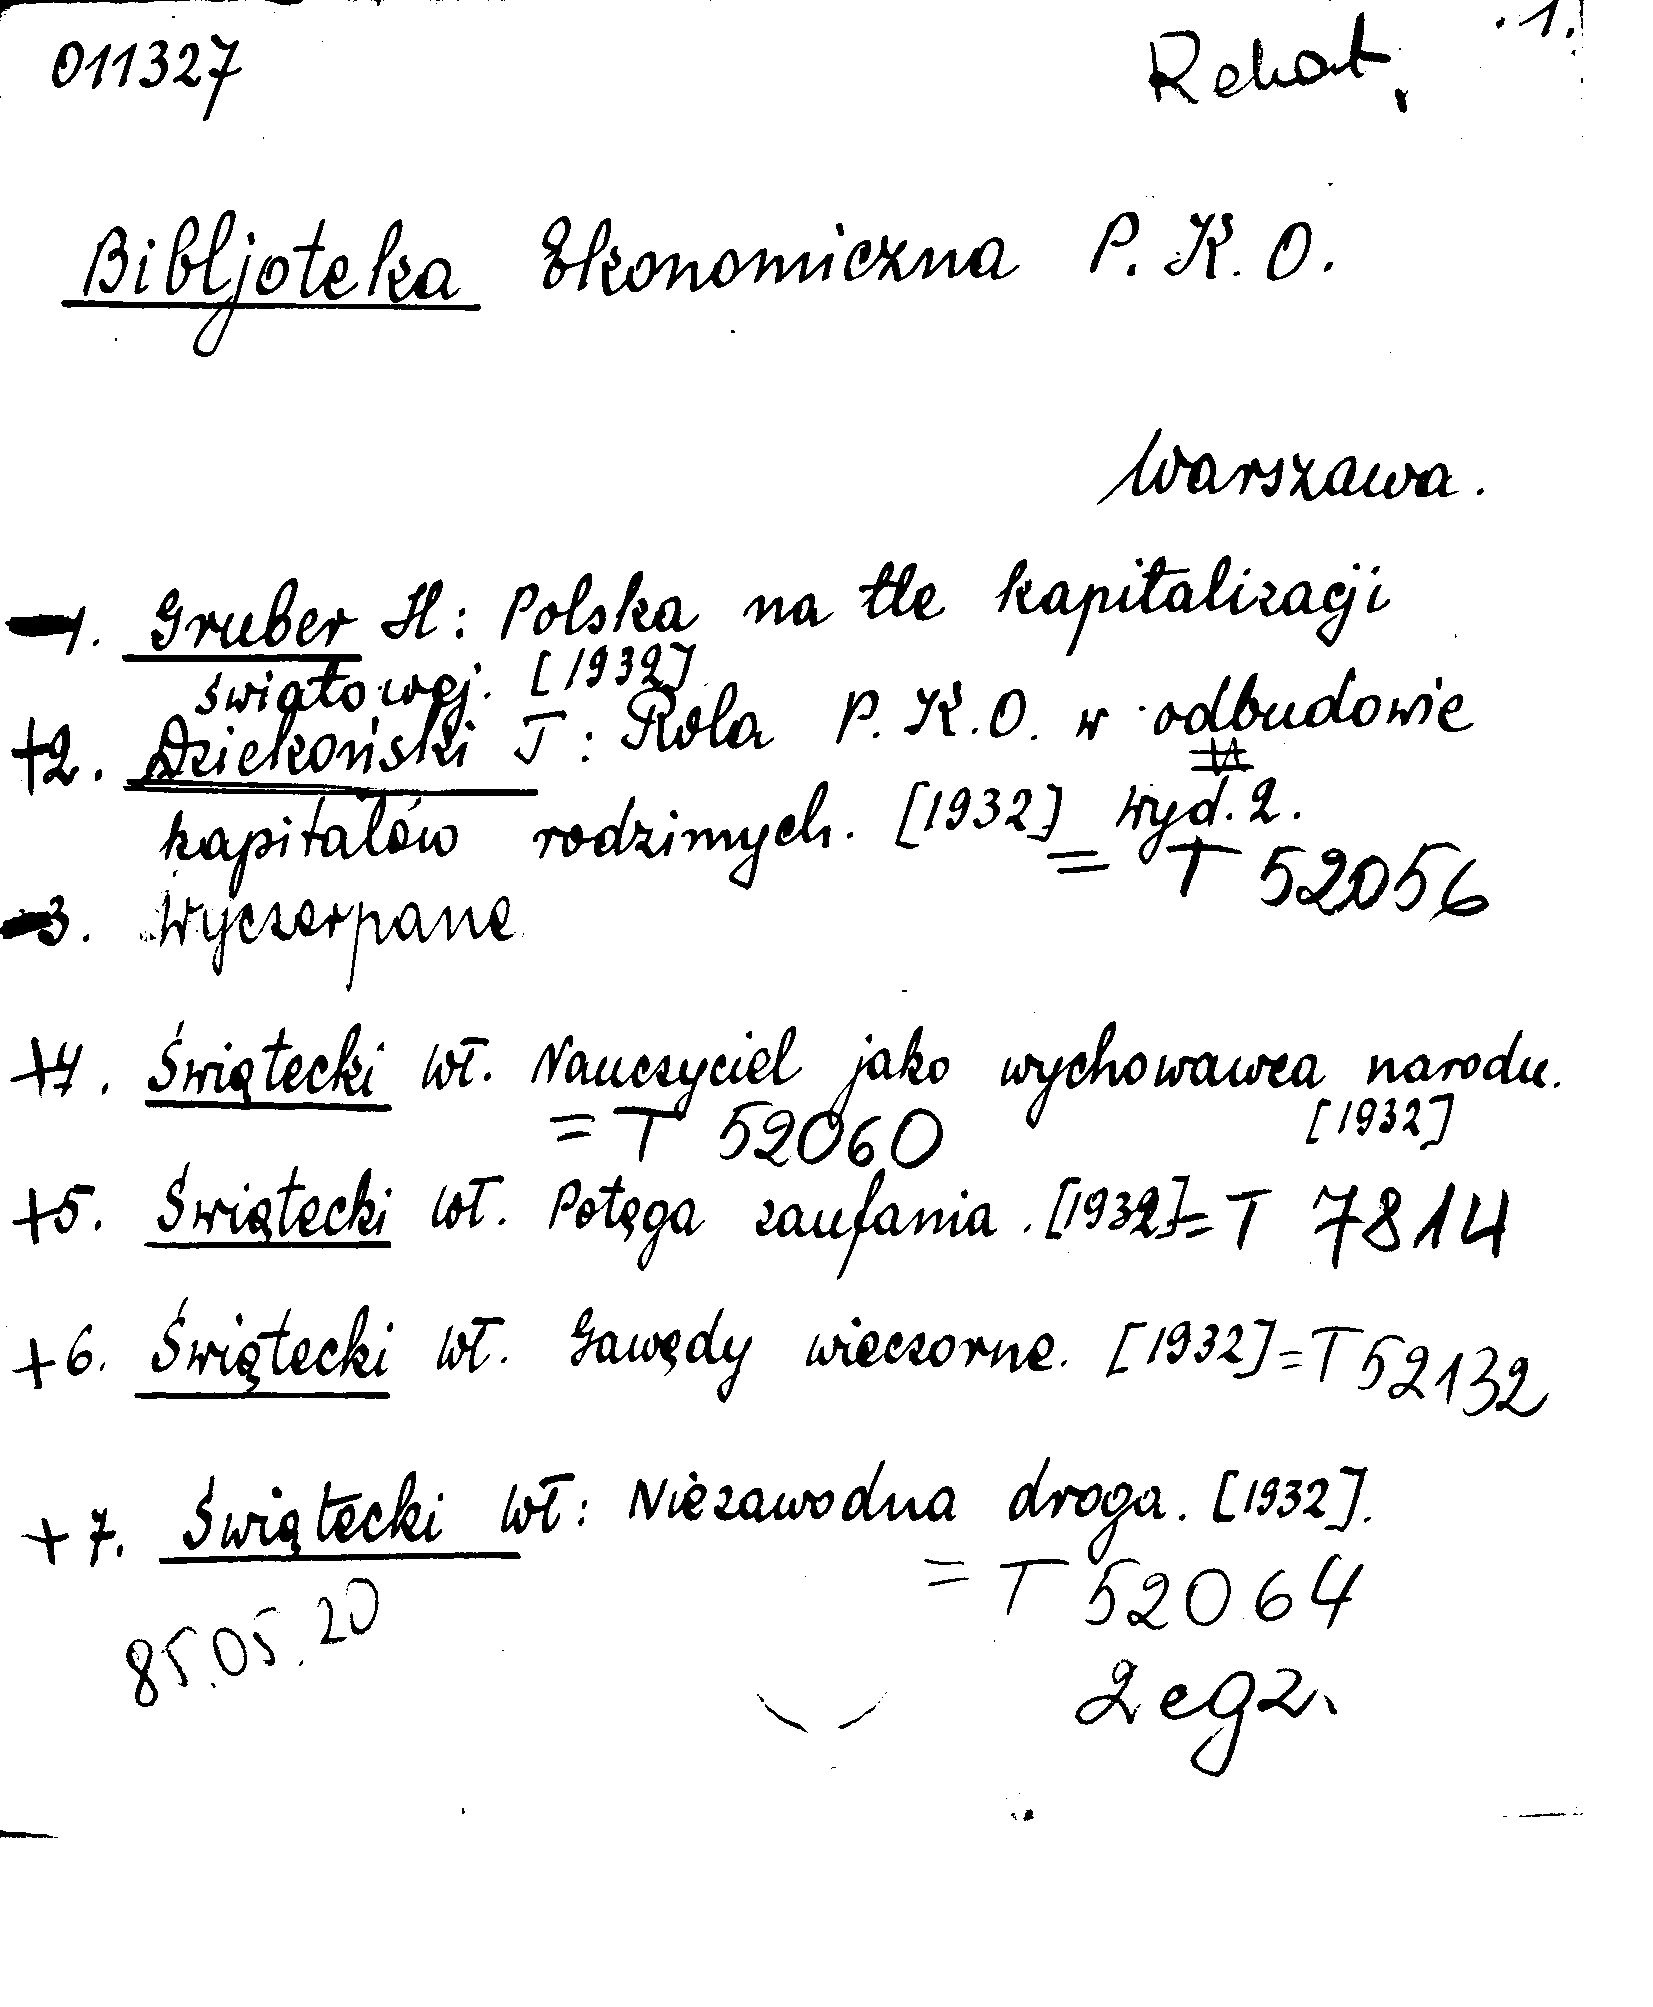 .1.
011327 Rekat.
Bibljoteka Ekonomiczna P. K. O.
Warszawa.
1. Gruber H: Polska na tle kapitalizacji
światowej. [1932]
+2. Dziekoński T: Rola P. K. O. w odbudowie
kapitałów rodzimych. [1932] wyd. 2.
= T 52056
3. Wyczerpane
+4. Świątecki Wł. Nauczyciel jako wychowawca narodu.
= T 52060 [1932]
+5. Świątecki Wł. Potęga zaufania. [1932] = T 7814
+6. Świątecki Wł. Gawędy wieczorne. [1932] = T 52132
+7. Świątecki Wł: Niezawodna droga. [1932].
= T 52064
85.05.20
2 egz.